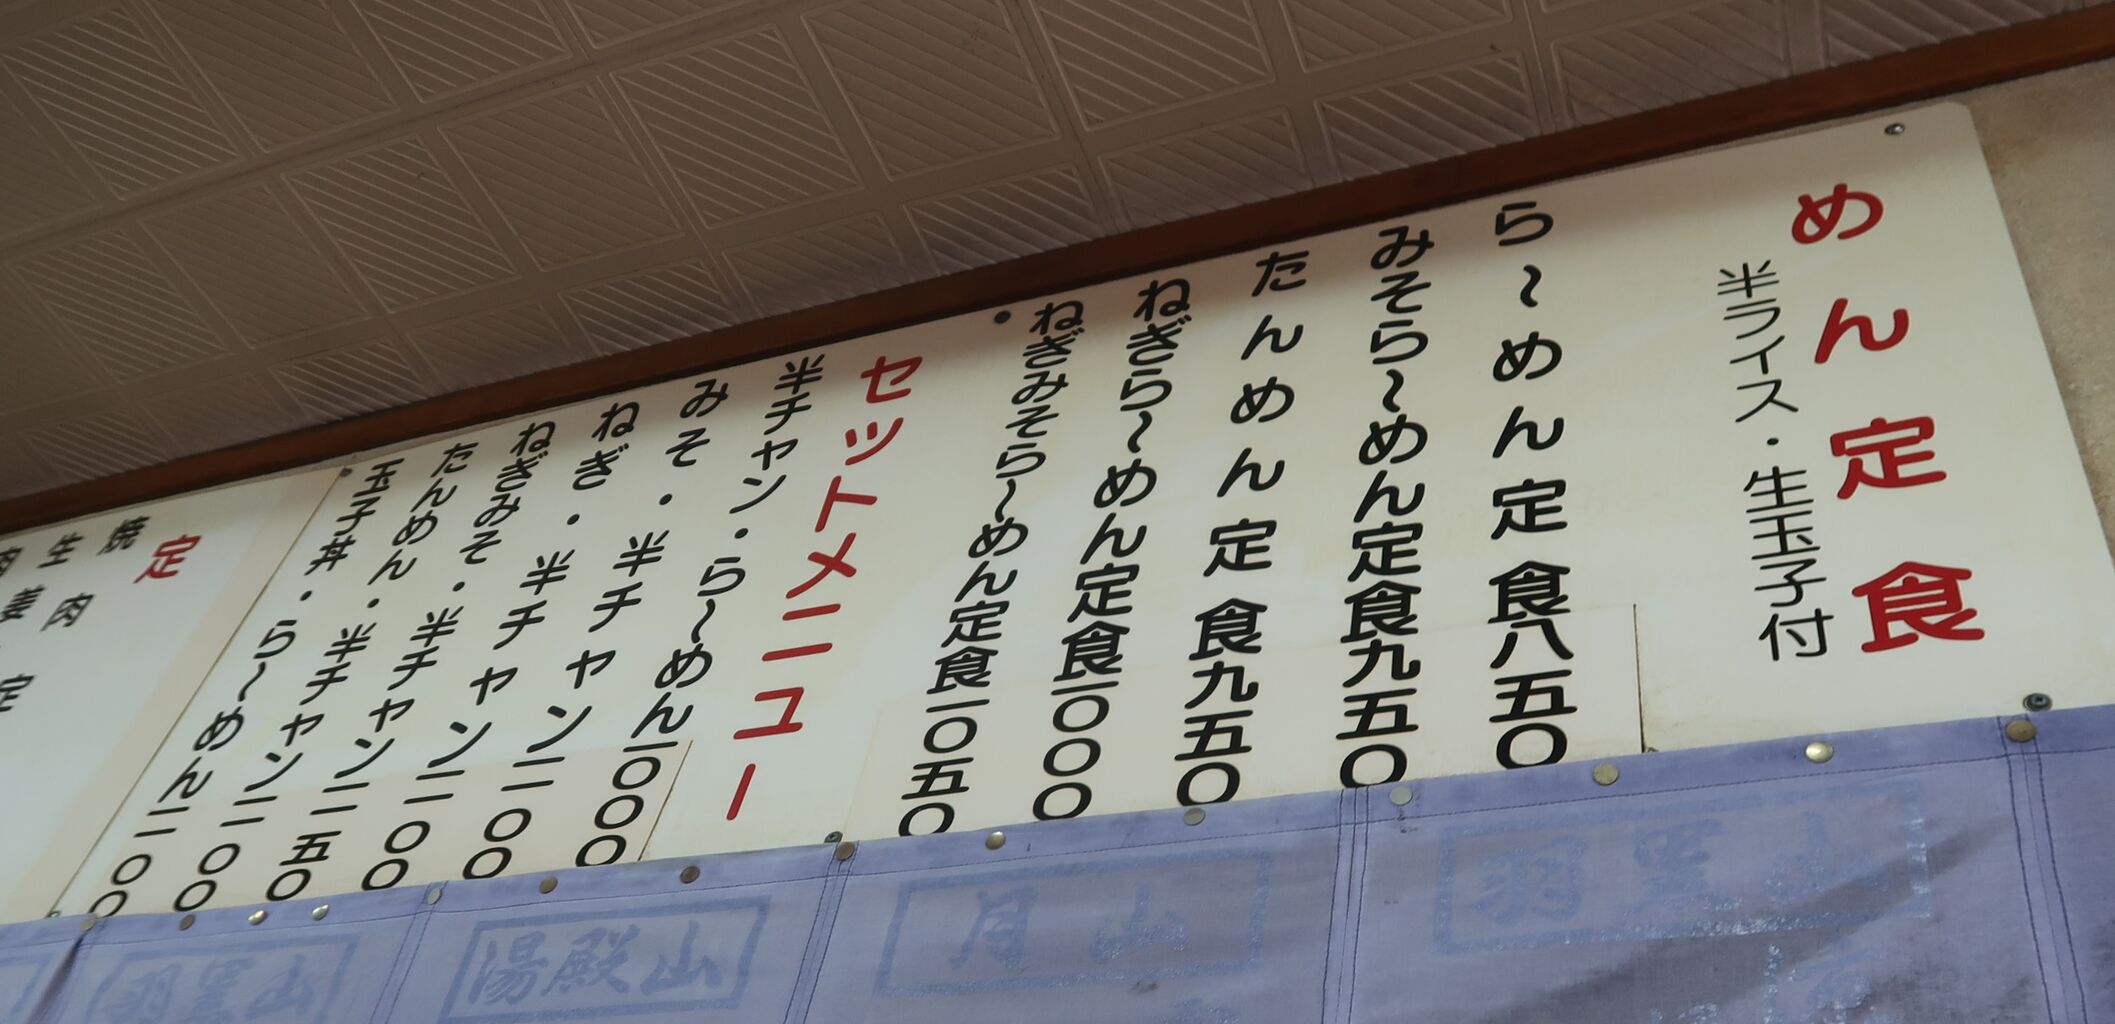 めん定食
半ライス・生玉子付
ら〜めん定食八五〇
みそら〜めん定食九五〇
たんめん定食九五〇
ねぎら〜めん定食一〇〇〇
ねぎみそら〜めん定食一〇五〇
セットメニュー
半チャン・ら〜めん一〇〇〇
みそ・半チャン一一〇〇
ねぎ・半チャン一一〇〇
ねぎみそ・半チャン一一五〇
たんめん・半チャン一一〇〇
玉子丼・ら〜めん一一〇〇
定
焼
生
肉
姜
定
羽黒山
月山
湯殿山
羽黒山